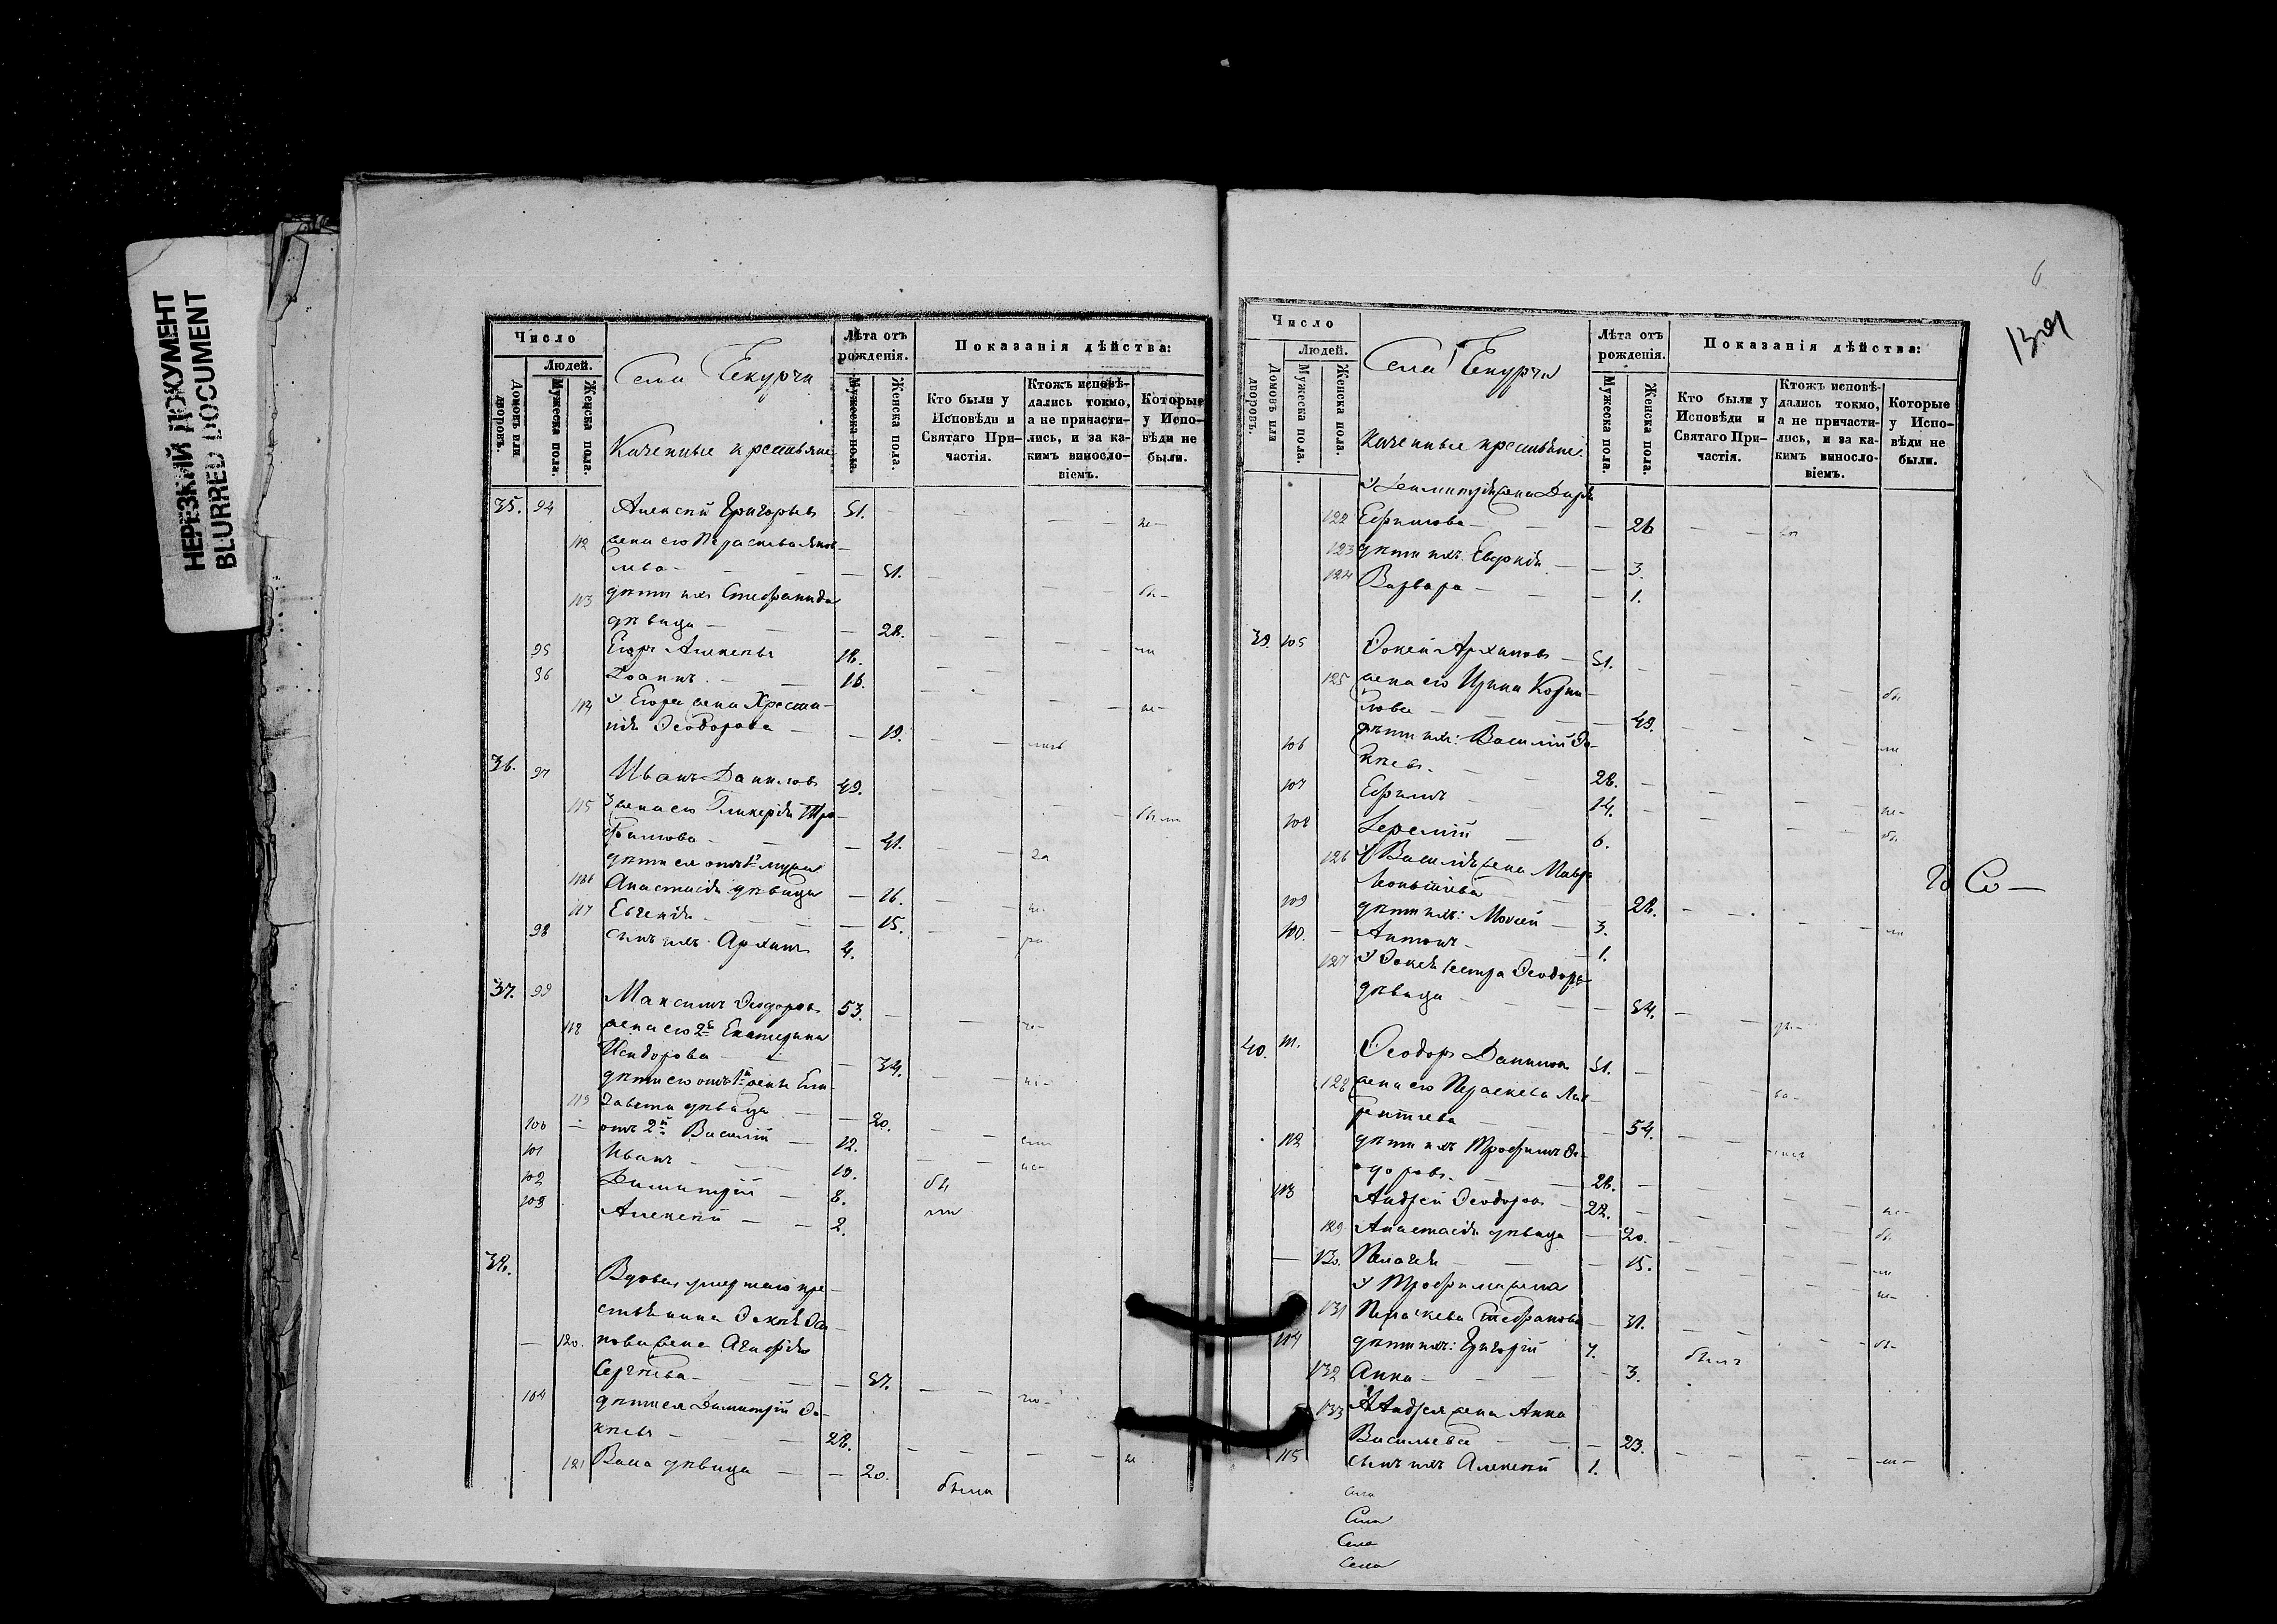 НЕРЕЗКИЙ ДОКУМЕНТ
BLURRED DOCUMENT
Число
Людей.
Домовъ или дворовъ.
Мужеска пола.
Женска пола.
Села Чекурчи
Казенные крестьяне
Лѣта отъ рожденія.
Мужеска пола.
Женска пола.
Показанія дѣйства:
Кто были у Исповѣди и Святаго Причастія.
Ктожъ исповѣдались токмо, а не причастились, и за какимъ винословіемъ.
Которые у Исповѣди не были.
35. 94 Алексѣй Григорьевъ 51.
112 жена его Параскева Яков-
лева 51.
113 дѣти ихъ Стефанида
дѣвица 28.
95 Егоръ Алексѣевъ 18.
96 Іоаннъ 16.
114 У Егора жена Христи-
нія Ѳеодорова 19.
36. 97 Иванъ Даниловъ 49.
115 жена его Гликерія Тро-
фимова 41.
дѣти ея отъ 1го мужа
116 Анастасія дѣвица 16.
117 Евгенія 15.
98 сынъ ихъ Архипъ 4.
37. 99 Максимъ Ѳеодоровъ 53.
118 жена его 2я Екатерина
Исидорова 34.
дѣти его отъ 1й жены Ели-
119 завета дѣвица 20.
100 отъ 2й Василій 12.
101 Иванъ 10.
102 Димитрій 8.
103 Алексѣй 2.
38. Вдова умершаго кре-
стьянина
120. жена Агафія
Сергѣева 57.
104 дѣти ея Димитрій Ѳо-
кѣевъ 28.
121 дѣвица 20.
были
Число
Людей.
Домовъ или дворовъ.
Мужеска пола.
Женска пола.
Села Чекурчи
Казенные крестьяне.
Лѣта отъ рожденія.
Мужеска пола.
Женска пола.
Показанія дѣйства:
Кто были у Исповѣди и Святаго Причастія.
Ктожъ исповѣдались токмо, а не причастились, и за какимъ винословіемъ.
Которые у Исповѣди не были.
У Димитрія жена Дарья
122 Ефимова 26
123 дѣти ихъ: Евфимія 3.
124 Варвара 1.
39. 105 Ѳокей Архиповъ 51.
125 жена его Ирина Корни-
лова 49.
106 дѣти ихъ: Василій Ѳо-
кѣевъ 28.
107 Ефимъ 14.
108 Іеремій 6.
126 У Василія жена Мавра
Леонтьева 28.
109 дѣти ихъ: Моисей 3.
110. Антонъ 1.
127 У Ѳокея сестра Ѳеодора
дѣвица 54.
40. 111. Ѳеодоръ Даниловъ 51.
128 жена его Параскева Лав-
рентьева 54.
112 дѣти ихъ Трофимъ Ѳе-
одоровъ 28.
113 Андрей Ѳеодоровъ 22.
129 Анастасія дѣвица 20.
130. Пелагея 15.
У Трофима жена
131 Параскева Стефанова 31.
114 дѣти ихъ: Григорій 7. былъ
132 Анна 3.
133 У Андрея жена Анна
Васильева 23.
115 сынъ ихъ Алексѣй 1.
Села
Села
Села
Села